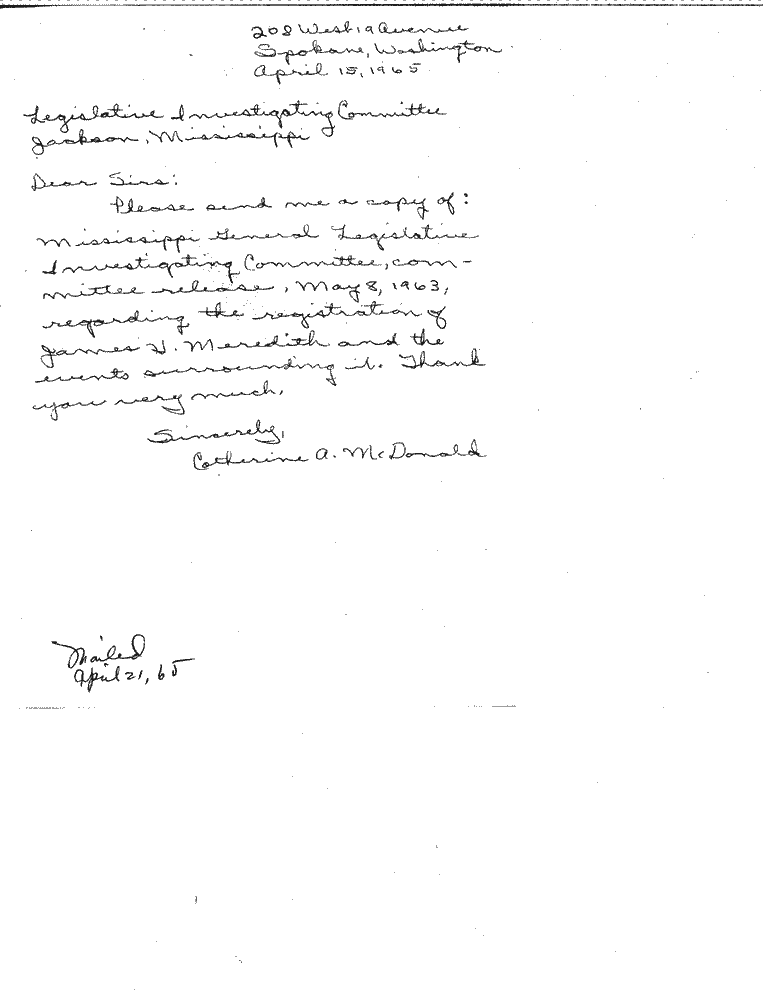 208 West 19 Avenue
Spokane, Washington
April 15, 1965
Legislative Investigating Committee
Jackson, Mississippi
Dear Sirs:
Please send me a copy of:
Mississippi General Legislative
Investigating Committee, com-
mittee release, May 8, 1963,
regarding the registration of
James H. Meredith and the
events surrounding it. Thank
you very much.
Sincerely,
Catherine A. McDonald
Mailed
April 21, 65